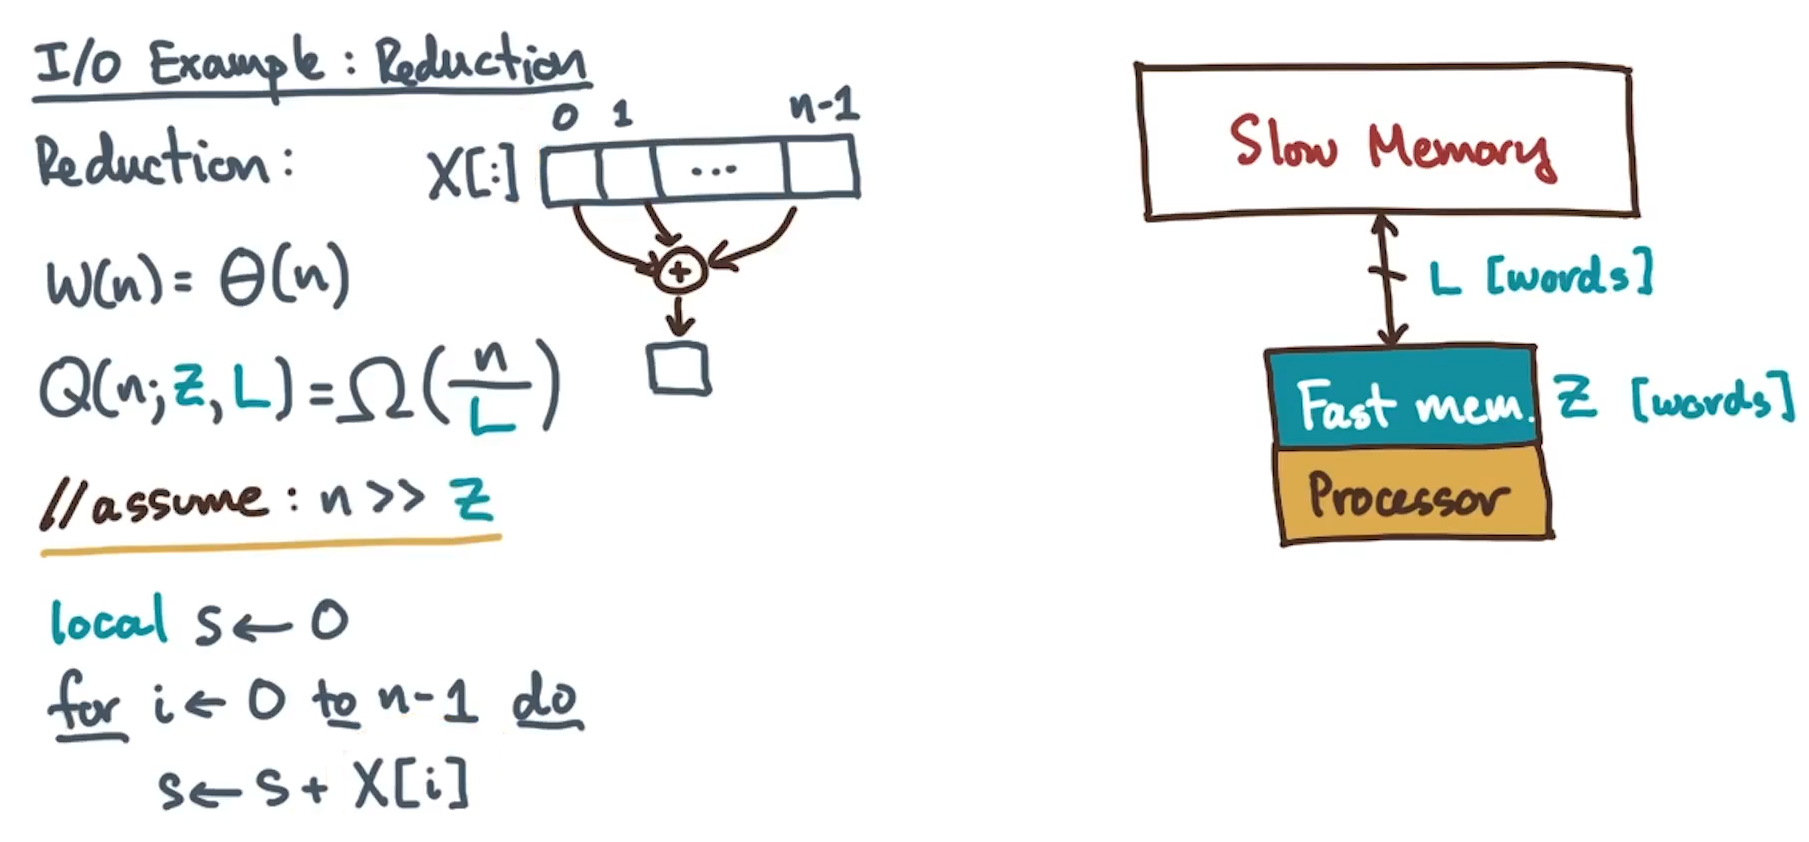 I/O Example: Reduction
0 1 n-1
Reduction: X[:] ...
+
W(n) = Θ(n)
Q(n; Z, L) = Ω(n/L)
//assume: n >> Z
local s ← 0
for i ← 0 to n-1 do
s ← s + X[i]
Slow Memory
L [words]
Fast mem. Z [words]
Processor